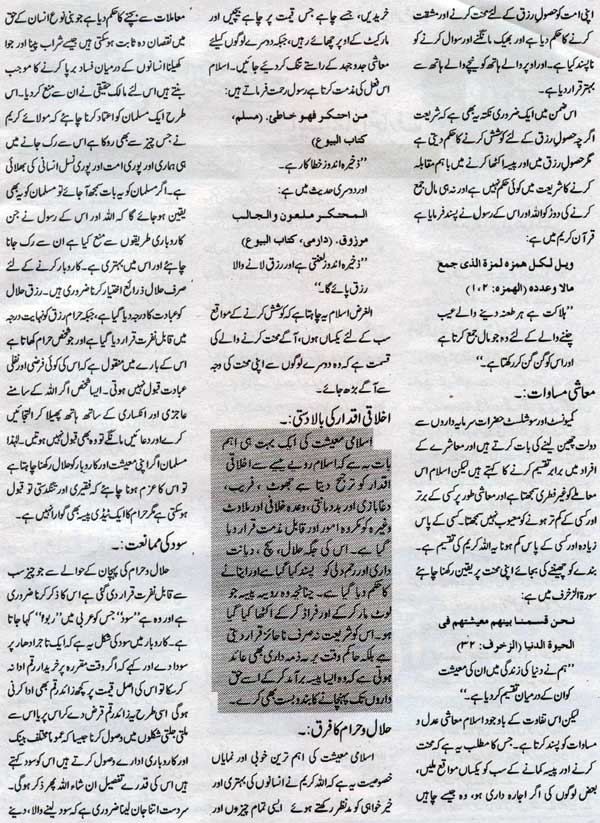 اپنی امت کو حصولِ رزق کے لئے محنت کرنے اور مشقت
کرنے کا حکم دیا ہے اور بھیک مانگنے اور سوال کرنے کو
ناپسند کیا ہے۔ اور اوپر والے ہاتھ کو نیچے والے ہاتھ سے
بہتر قرار دیا ہے۔
اس ضمن میں ایک ضروری نکتہ یہ بھی ہے کہ شریعت
اگرچہ حصولِ رزق کے لئے کوشش کرنے کا حکم دیتی ہے
مگر حصولِ رزق میں اور پیسہ اکٹھا کرنے میں باہم مقابلہ
کرنے کا شریعت میں کوئی حکم نہیں ہے اور نہ ہی مال جمع
کرنے کی دوڑ کو اللہ اور اس کے رسول نے پسند فرمایا ہے
قرآن کریم میں ہے:
ویل لکل همزه لمزة الذی جمع
مالا وعدده (الهمزه: ۱،۲)
"ہلاکت ہے ہر طعنہ دینے والے عیب
چننے والے کے لئے وہ جو مال جمع کرتا ہے
اور اس کو گن گن کر رکھتا ہے۔"
معاشی مساوات:۔
کمیونسٹ اور سوشلسٹ حضرات سرمایہ داروں سے
دولت چھین لینے کی بات کرتے ہیں اور معاشرے کے
افراد میں برابر تقسیم کرنے کا کہتے ہیں لیکن اسلام اس
معاملے کو غیر فطری سمجھتا ہے اور معاشی طور پر کسی کے برتر
اور کسی کے کم تر ہونے کو معیوب نہیں سمجھتا۔ کسی کے پاس
زیادہ اور کسی کے پاس کم ہونا یہ اللہ کریم کی تقسیم ہے۔
بندے کو چھیننے کی بجائے اپنی محنت پر یقین رکھنا چاہئے
سورۃ الزخرف میں ہے:
نحن قسمنا بینهم معیشتهم فی
الحیوة الدنیا (الزخرف: ۳۲)
"ہم نے دنیا کی زندگی میں ان کی معیشت
کو ان کے درمیان تقسیم کر دیا ہے۔"
لیکن اس تفاوت کے باوجود اسلام معاشی عدل و
مساوات کو پسند کرتا ہے۔ جس کا مطلب یہ ہے کہ محنت
کرنے اور پیسہ کمانے کے سب کو یکساں مواقع ملیں،
بعض لوگوں کی اگر اجارہ داری ہو، وہ جیسے چاہیں
خریدیں، جسے چاہے جس قیمت پر چاہے بیچیں اور
مارکیٹ کے اوپر چھائے رہیں، جبکہ دوسرے لوگوں کیلئے
معاشی جدوجہد کے راستے تنگ کر دیئے جائیں۔ اسلام
اس فعل کی مذمت کرتا ہے رسول رحمت فرماتے ہیں:
من احتکر فهو خاطئ. (مسلم،
کتاب البیوع)
"ذخیرہ اندوز خطا کار ہے۔
اور دوسری حدیث میں ہے:
المحتکر ملعون والجالب
مرزوق. (دارمی، کتاب البیوع)
"ذخیرہ اندوز لعنتی ہے اور رزق لانے والا
رزق پائے گا۔"
الغرض اسلام یہ چاہتا ہے کہ کوشش کرنے کے مواقع
سب کے لئے یکساں ہوں، آگے محنت کرنے والے کی
قسمت ہے کہ وہ دوسرے لوگوں سے اپنی محنت کی وجہ
سے آگے بڑھ جائے۔
اخلاقی اقدار کی بالادستی:۔
اسلامی معیشت کی ایک بہت ہی اہم
بات یہ ہے کہ اسلام روپے پیسے سے اخلاقی
اقدار کو ترجیح دیتا ہے جھوٹ، فریب،
دغا بازی اور بددیانتی، وعدہ خلافی اور ملاوٹ
وغیرہ کو مکروہ امور اور قابل مذمت قرار دیا
گیا ہے۔ اس کی جگہ حلال، سچ، دیانت
داری اور رحم دلی کو پسند کیا گیا ہے اور اپنانے
کا حکم دیا گیا ہے۔ چنانچہ وہ روپیہ پیسہ جو
لوٹ مار کر کے اور فراڈ کر کے اکٹھا کیا گیا
ہو۔ اس کو شریعت نہ صرف ناجائز قرار دیتی
ہے بلکہ حاکم وقت پر یہ ذمہ داری بھی عائد
ہوتی ہے کہ وہ ایسا پیسہ برآمد کر کے اسے حق
داروں تک پہنچانے کا بندوبست بھی کرے۔
حلال و حرام کا فرق:۔
اسلامی معیشت کی اہم ترین خوبی اور نمایاں
خصوصیت یہ ہے کہ اللہ کریم نے انسانوں کی بہتری اور
خیر خواہی کو مدنظر رکھتے ہوئے ایسی تمام چیزوں اور
معاملات سے بچنے کا حکم دیا ہے جو بنی نوع انسان کے حق
میں نقصان دہ ثابت ہو سکتی ہیں جیسے شراب پینا اور جوا
کھیلنا انسانوں کے درمیان فساد برپا کرنے کا موجب
بنتے ہیں اس لئے مالک حقیقی نے ان سے منع کر دیا۔ اس
طرح ایک مسلمان کو اعتماد کرنا چاہئے کہ مولائے کریم
نے جس چیز سے بھی روکا ہے اس سے رک جانے میں
ہی ہماری اور پوری امت اور پوری نسل انسانی کی بھلائی
ہے۔ اگر مسلمان کو یہ بات سمجھ آ جائے تو مسلمان کو یہ بھی
یقین ہو جائے گا کہ اللہ اور اس کے رسول نے جن
کاروباری طریقوں سے منع کیا ہے ان سے رک جانا
چاہئے اور اس میں بہتری ہے۔ کاروبار کرنے کے لئے
صرف حلال ذرائع اختیار کرنا ضروری ہیں۔ رزق حلال
کو عبادت کا درجہ دیا گیا ہے، جبکہ حرام رزق کو نہایت درجہ
میں قابل نفرت قرار دیا گیا ہے اور جو شخص حرام کھاتا ہے
اس کے بارے میں منقول ہے کہ اس کی کوئی فرضی اور نفلی
عبادت قبول نہیں ہوتی۔ ایسا شخص اگر اللہ کے سامنے
عاجزی اور انکساری کے ساتھ ہاتھ پھیلا کر التجائیں
کرے اور دعائیں مانگے تو وہ بھی قبول نہیں ہوتیں۔ لہٰذا
مسلمان اگر اپنی معیشت اور کاروبار کو حلال رکھنا چاہتا ہے
تو اس کا عزم ہونا چاہئے کہ فقیری اور تنگدستی تو قبول
ہو سکتی ہے مگر حرام کا ایک ٹیڈی پیسہ بھی گوارا نہیں ہے۔
سود کی ممانعت:۔
حلال و حرام کی پہچان کے حوالے سے جو چیز سب
سے قابل نفرت قرار دی گئی ہے اس کا ذکر کرنا ضروری
ہے اور وہ ہے "سود" جس کو عربی میں "ربوا" کہا جاتا
ہے۔ کاروبار میں سود کی شکل یہ ہے کہ ایک تاجر ادھار پر
سودا دے اور کہے کہ اگر وقت مقررہ پر خریدار رقم ادا نہ
کر سکا تو اس کی اصل قیمت پر کچھ زائد رقم بھی ادا کرنی
ہوگی اسی طرح یہ زائد رقم قرض دے کر اس پر یا اس سے
ملتی جلتی شکلوں میں وصول کرنا جیسا کہ عموماً مختلف بینک
اور کاروباری ادارے وصول کرتے ہیں اس کو سود کہتے
ہیں اس کی قدرے تفصیل ان شاء اللہ پھر ذکر ہوگی۔
سردست اتنا جان لینا ضروری ہے کہ سود لینے والا، دینے